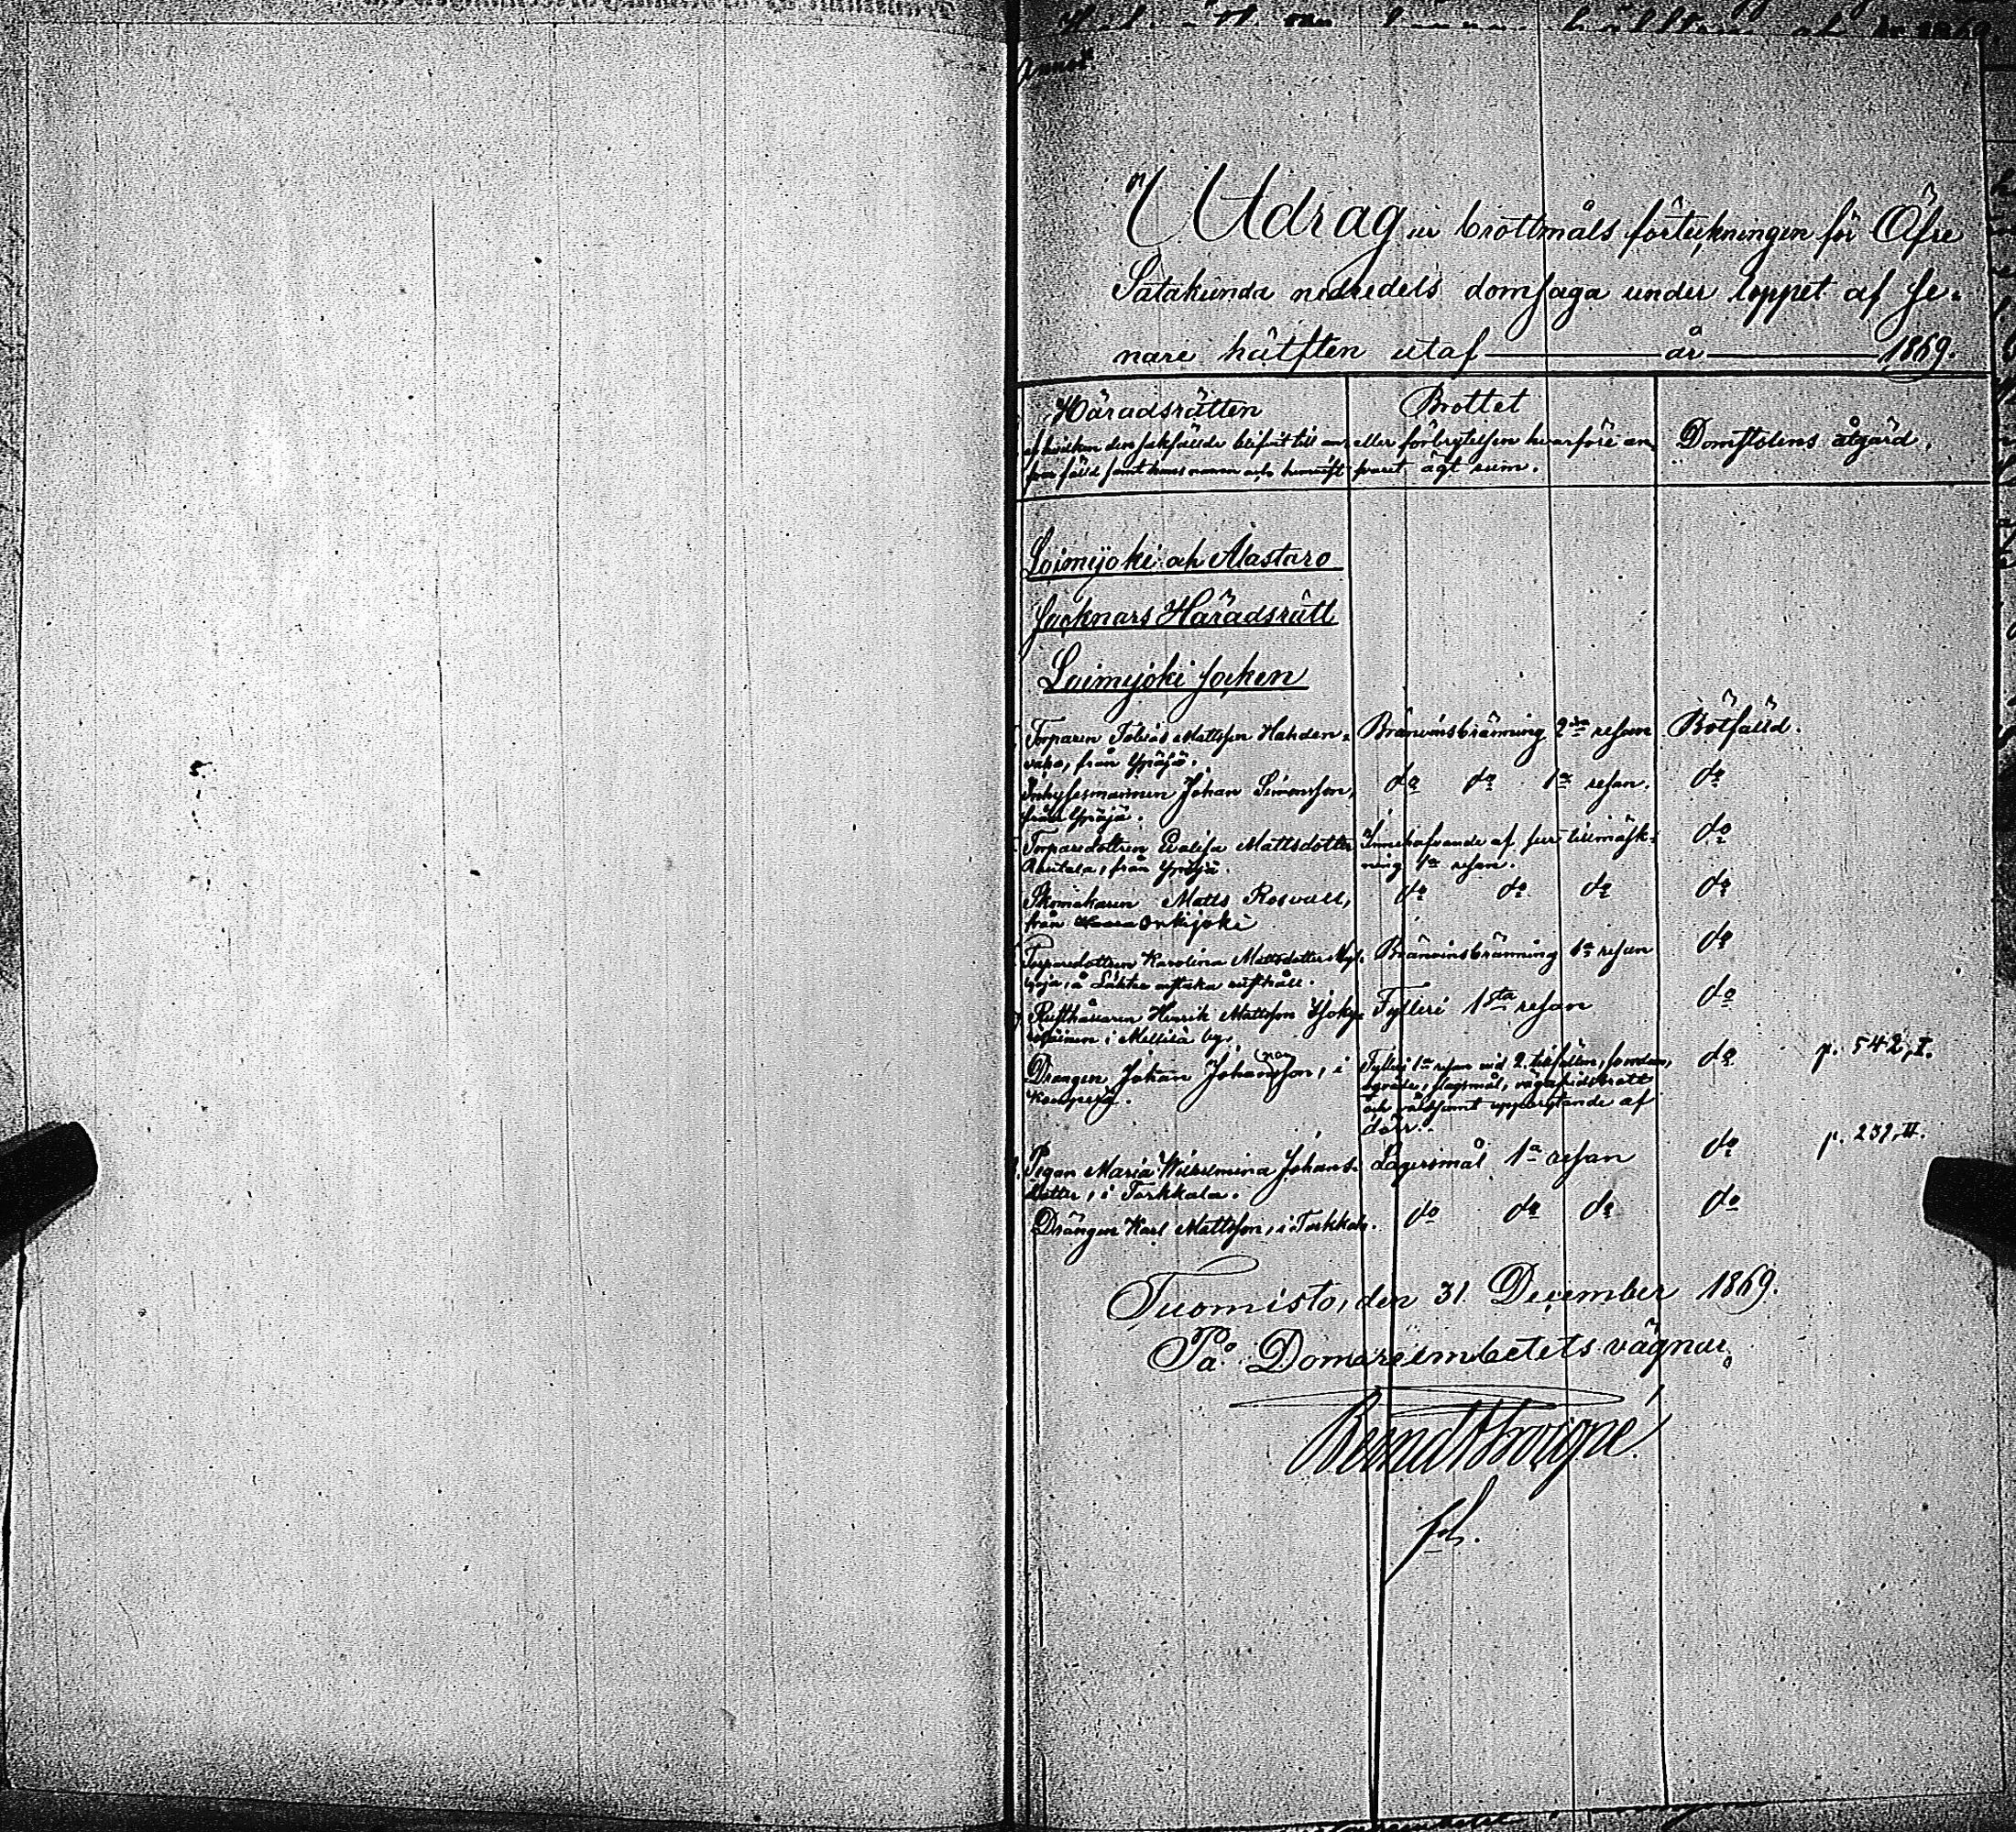 Utdrag ur brottmåls förteckningen för Öfre
Satakunda nedredels domsaga under loppet af se-
nare hälften utaf år 1869.
Häradsrätten
af hvilken den sakfällde blifvit till an-
svar fälld samt hans namn och hemvist
Brottet
eller förbrytelsen hvarföre an-
svaret ägt rum.
Domstolens åtgärd.
Loimijoki och Alastaro
socknars Häradsrätt
Loimijoki socken
Torparen Tobias Mattsson Hahden-
vaha, från Ypäjä.
Bränvinsbränning 2dra resan
Bötfälld.
Inhysesmannen Johan Simonsson,
från Ypäjä.
do do 1a resan.
do
Torparedottren Evalisa Mattsdotter
Rautala, från Ypäjä.
Innehafvande af sur
ning 1a resan.
do
Skomakaren Matts Rosvall,
från Orkijoki
do do do
do
Torparedottren Karolina Mattsdotter
å rusthåll.
Bränvinsbränning 1a resan
do
Rusthållaren Henrik Mattsson
i Mellilä by.
Fylleri 1sta resan
do
Drängen Johan Johansson, i
Fylleri 1a resan vid 2 tillfällen,
slagsmål, vägafridsbrott
och våldsamt uppbrytande af
dörr.
do
p. 542, I.
Pigan Maria Wilhelmina Johans-
dotter, i Torkkala.
Lägersmål 1a resan
do
p. 232, II.
Drängen Karl Mattsson, i Torkkala.
do do do
do
Tuomisto, den 31 December 1869.
På Domareembetets vägnar,